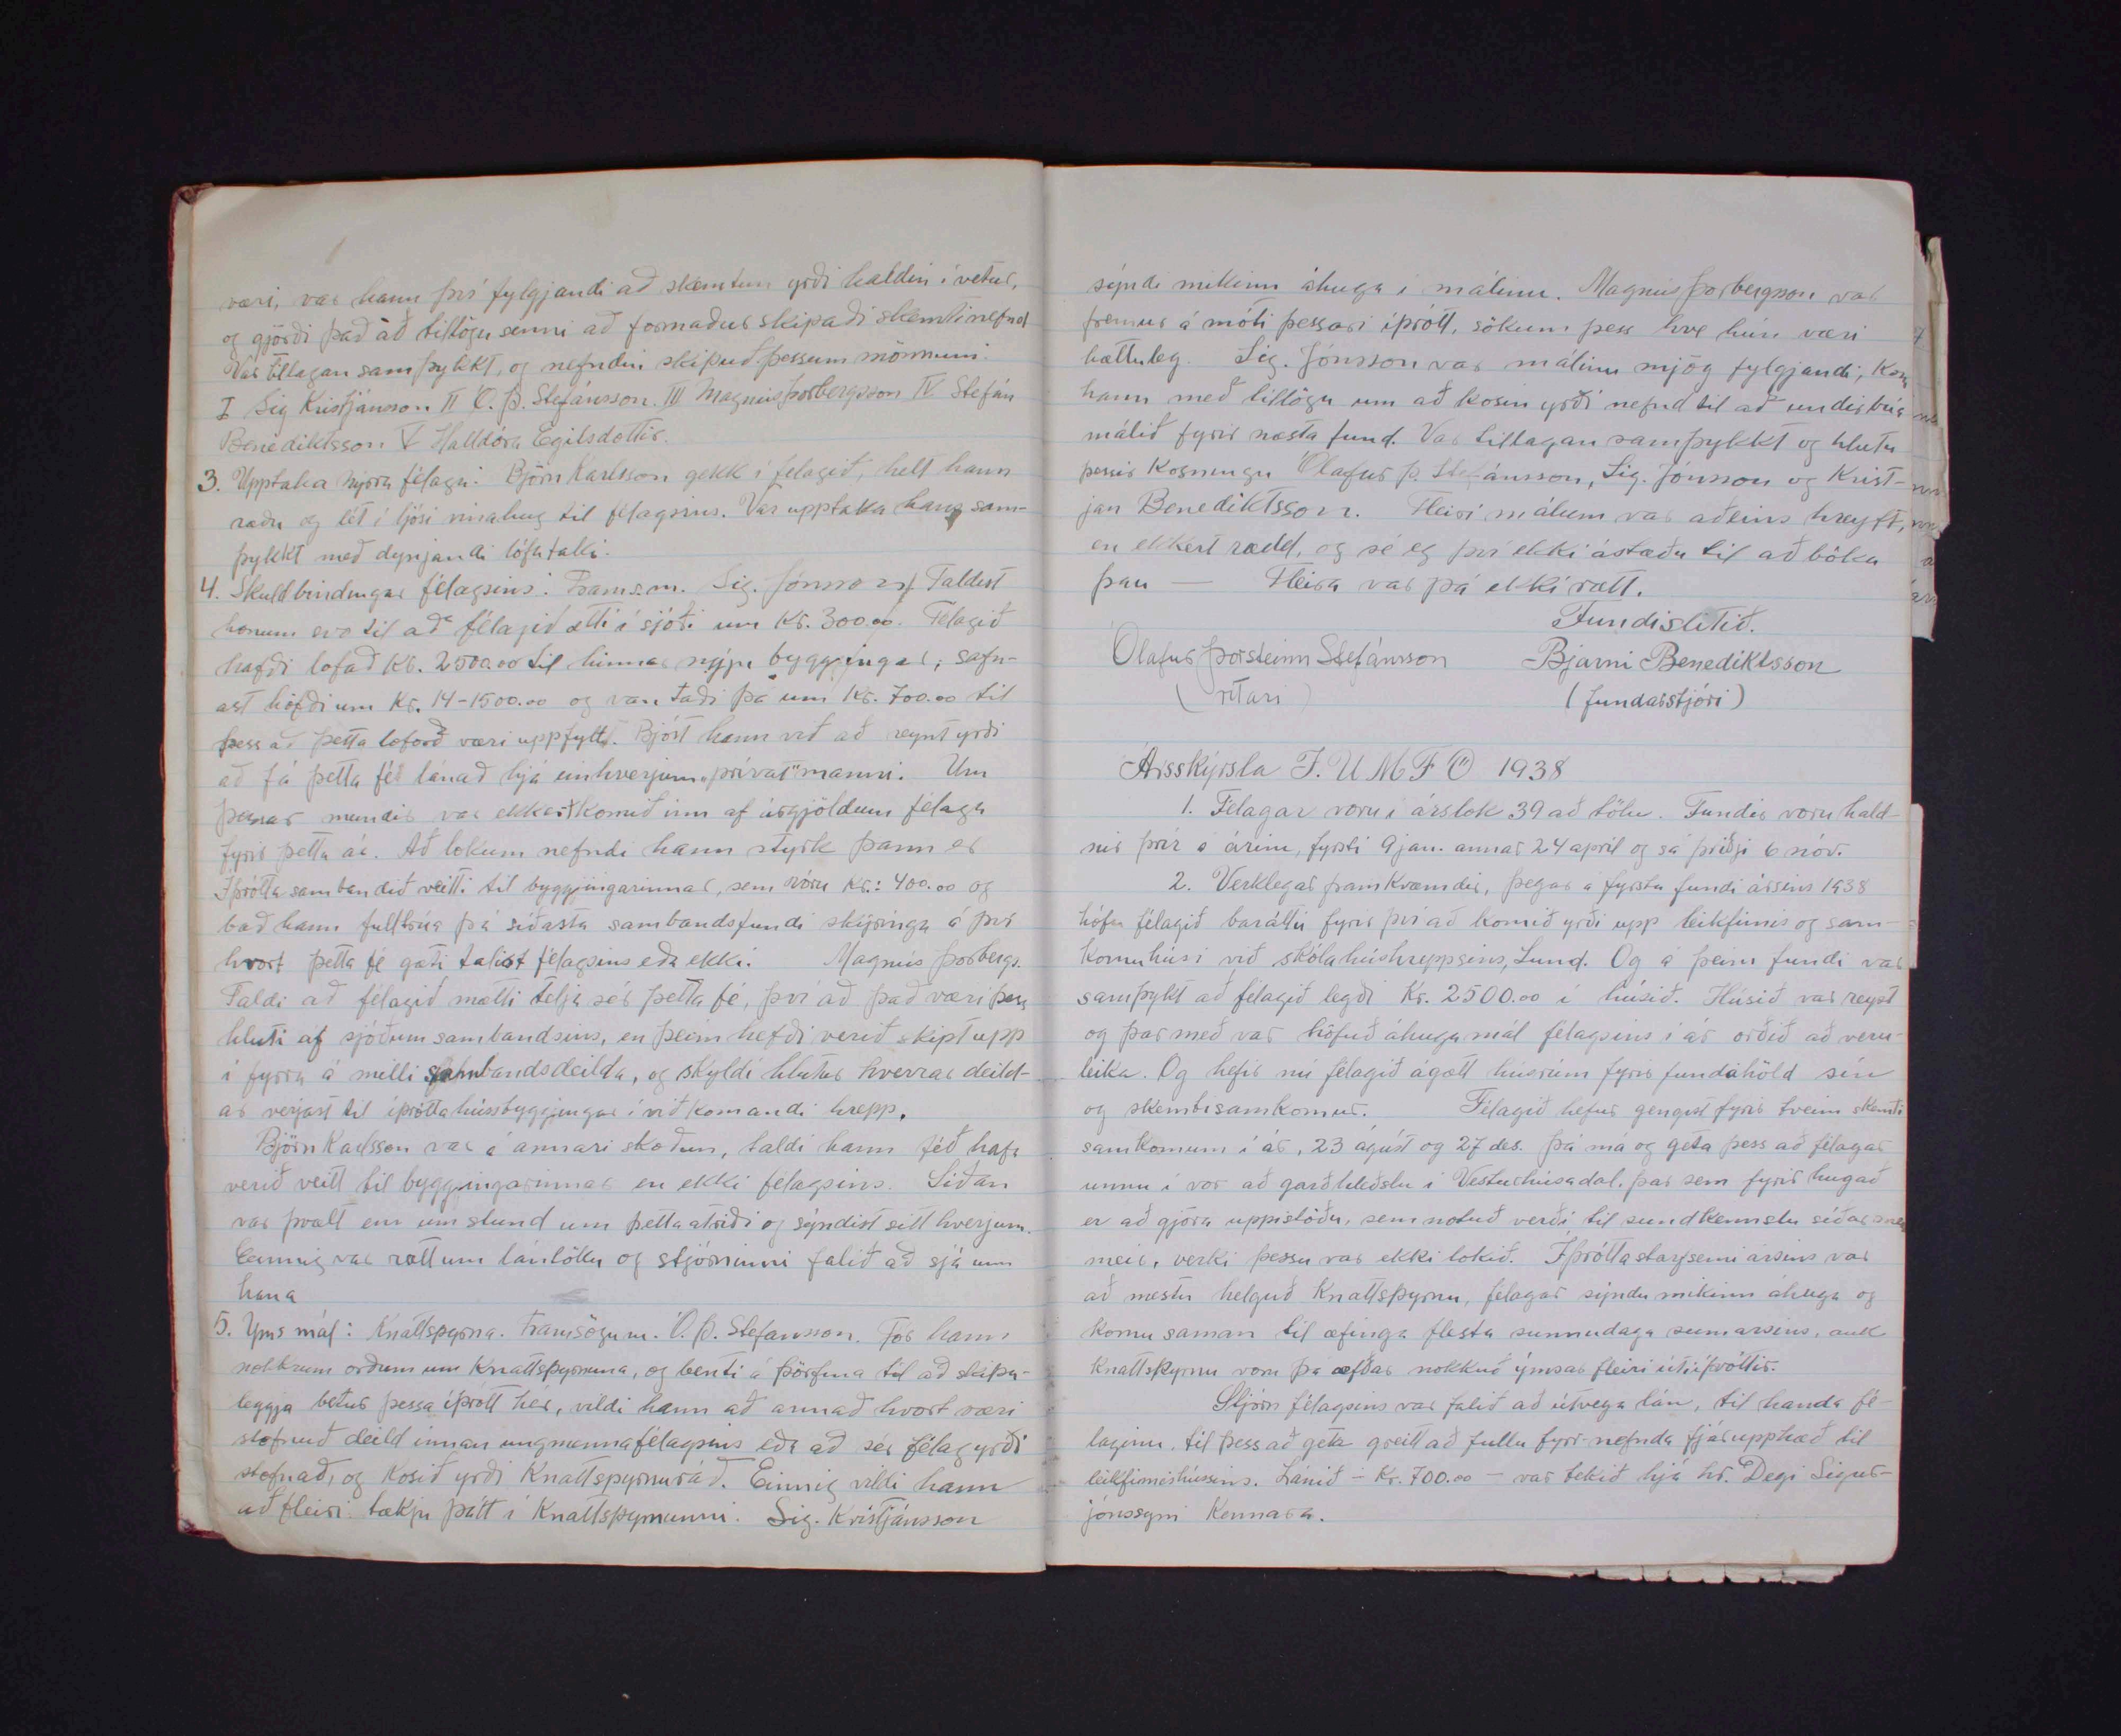 væri, var hann því fylgjandi að skemtun yrði haldin í vetur,
og gjörði það að tillögu sinni að formaður skipaði skemtinefnd
Var tillagan samþykkt, og nefndin skipuð þessum mönnum.
I Sig Kristjánsson II Ó. Þ. Stefánsson. III Magnús Þorbergsson IV Stefán
Benediktsson V Halldóra Egilsdóttir.
3. Upptaka nýrra félaga: Björn Karlsson gekk í félagið, helt hann
ræðu og lét í ljósi vinahug til félagsins. Var upptaka hans sam-
þykkt með dynjandi lófataki.
4. Skuldbindingar félagsins: Framsm. Sig. Jónsson. Taldist
honum svo til að félagið ætti í sjóði um Kr. 300.00. Félagið
hafði lofað Kr. 2500.00 til hinnar nýju byggingar, safn-
ast höfðu um Kr. 14-1500.00 og vantaði þá um Kr. 700.00 til
þess að þetta loforð væri uppfyllt. Bjóst hann við að reynt yrði
að fá þetta féð lánað hjá einhverjum „prívat" manni. Um
þessar mundir var ekkert komið inn af árgjöldum félaga
fyrir þetta ár. Að lokum nefndi hann styrk þann er
Íþróttasambandið veitti til byggingarinnar, sem vóru Kr.: 400.00 og
bað hann fulltrúa þá síðasta sambandsfundi skýringa á því
hvort þetta fé gæti talist félagsins eða ekki. Magnús Þorbergs.
Taldi að félagið mætti telja sér þetta fé, því að það væri þess
hluti af sjóðum sambandsins, en þeim hefði verið skipt upp
í fyrra á milli sambandsdeilda, og skyldi hlutur hverrar deild-
ar verjast til íþróttahússbyggingar í viðkomandi hrepp.
Björn Karlsson var á annari skoðun, taldi hann féð hafa
verið veitt til byggingarinnar en ekki félagsins. Síðan
var þvælt enn um stund um þetta atriði og sýndist sitt hverjum.
Einnig var rætt um lántöku og stjórninni falið að sjá um
hana
5. Yms mál: Knattspyrna. Framsögum. Ó. Þ. Stefansson. Fór hann
nokkrum orðum um Knattspyrnuna, og benti á þörfina til að skipu-
leggja betur þessa íþrótt hér, vildi hann að annað hvort væri
stofnuð deild innan ungmennafélagsins eða að sér félag yrði
stofnað, og Kosið yrði Knattspyrnuráð. Einnig vildi hann
að fleiri tækju þátt í Knattspyrnunni. Sig. Kristjánsson
sýndi mikinn áhuga í málinu. Magnús Þorbergsson var
fremur á móti þessari íþrótt, sökum þess hve hún væri
hættuleg. Sig. Jónsson var málinu mjög fylgjandi, Kom
hann með tillögu um að kosin yrði nefnd til að undirbúa
málið fyrir næsta fund. Var tillagan samþykkt og hlutu
þessir Kosningu Ólafur Þ. Stefánsson, Sig. Jónsson og Krist-
ján Benediktsson. Fleiri málum var aðeins hreyft,
en ekkert rædd, og sé eg því ekki ástæðu til að bóka
þau — Fleira var þá ekki rætt.
Fundi slitið.
Ólafur Þorsteinn Stefánsson Bjarni Benediktsson
(ritari) (fundarstjóri)
Ársskýrsla F. U M F Ö 1938
1. Félagar voru í árslok 39 að tölu. Fundir voru hald-
nir þrír á árinu, fyrsti 9 jan. annar 24 apríl og sá þriðji 6 nóv.
2. Verklegar framkvæmdir, þegar á fyrsta fundi ársins 1938
hófu félagið baráttu fyrir því að komið yrði upp leikfimis og sam-
komuhúsi við skólahús hreppsins, Lund. Og á þeim fundi var
samþykt að félagið legði Kr. 2500.00 í húsið. Húsið var reyst
og þar með var höfuð áhugamál félagsins í ár orðið að veru-
leika. Og hefir nú félagið ágætt húsrúm fyrir fundahöld sín
og skemtisamkomur. Félagið hefur gengist fyrir tveim skemti
samkomum í ár, 23 ágúst og 27 des. Þá má og geta þess að félagar
unnu í vor að garðhleðslu í Vesturhúsadal. þar sem fyrir hugað
er að gjöra uppistöðu, sem notuð verði til sundkennslu síðar
meir, verki þessu var ekki lokið. Íþróttastarfsemi ársins var
að mestu helguð Knattspyrnu, félagar sýndu mikinn áhuga og
komu saman til æfinga flesta sunnudaga sumarsins, auk
Knattspyrnu voru þá æfðar nokkuð ýmsar fleiri útiíþróttir.
Stjórn félagsins var falið að útvega lán, til handa fé-
laginu, til þess að geta greitt að fullu fyrr-nefnda fjárupphæð til
leikfimishússins. Lánið - Kr. 700.00 - var tekið hjá hr. Degi Sigur-
jónssyni Kennara.